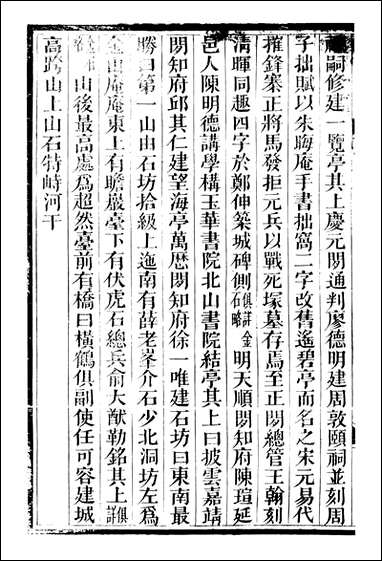 嗣修建一覽亭其上慶元間通判廖德明建周敦頤祠並刻周
子拙賦以朱晦庵手書拙窩二字改舊遙碧亭而名之宋元易代
摧鋒寨正將馬發拒元兵以戰死塚墓存焉至正間總管王翰刻
清暉同趣四字於鄭伸築城碑側俱詳金石略明天順間知府陳瑄延
邑人陳明德講學構玉華書院北山書院結亭其上曰披雲嘉靖
間知府邱其仁建望海亭萬歷間知府徐一唯建石坊曰東南最
勝曰第一山由石坊拾級上迤南有薛老峯介石少北洞坊左爲
金山庵庵東上有瞻巖臺下有伏虎石總兵俞大猷勒銘其上俱詳
山後最高處爲超然臺前有橋曰橫鶴俱副使任可容建城
高跨山上山石特峙河干